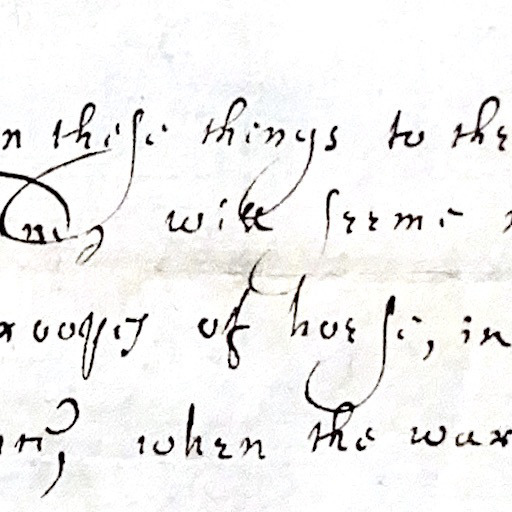 n these things to the
will seeme
troopes of horse, in
when the war